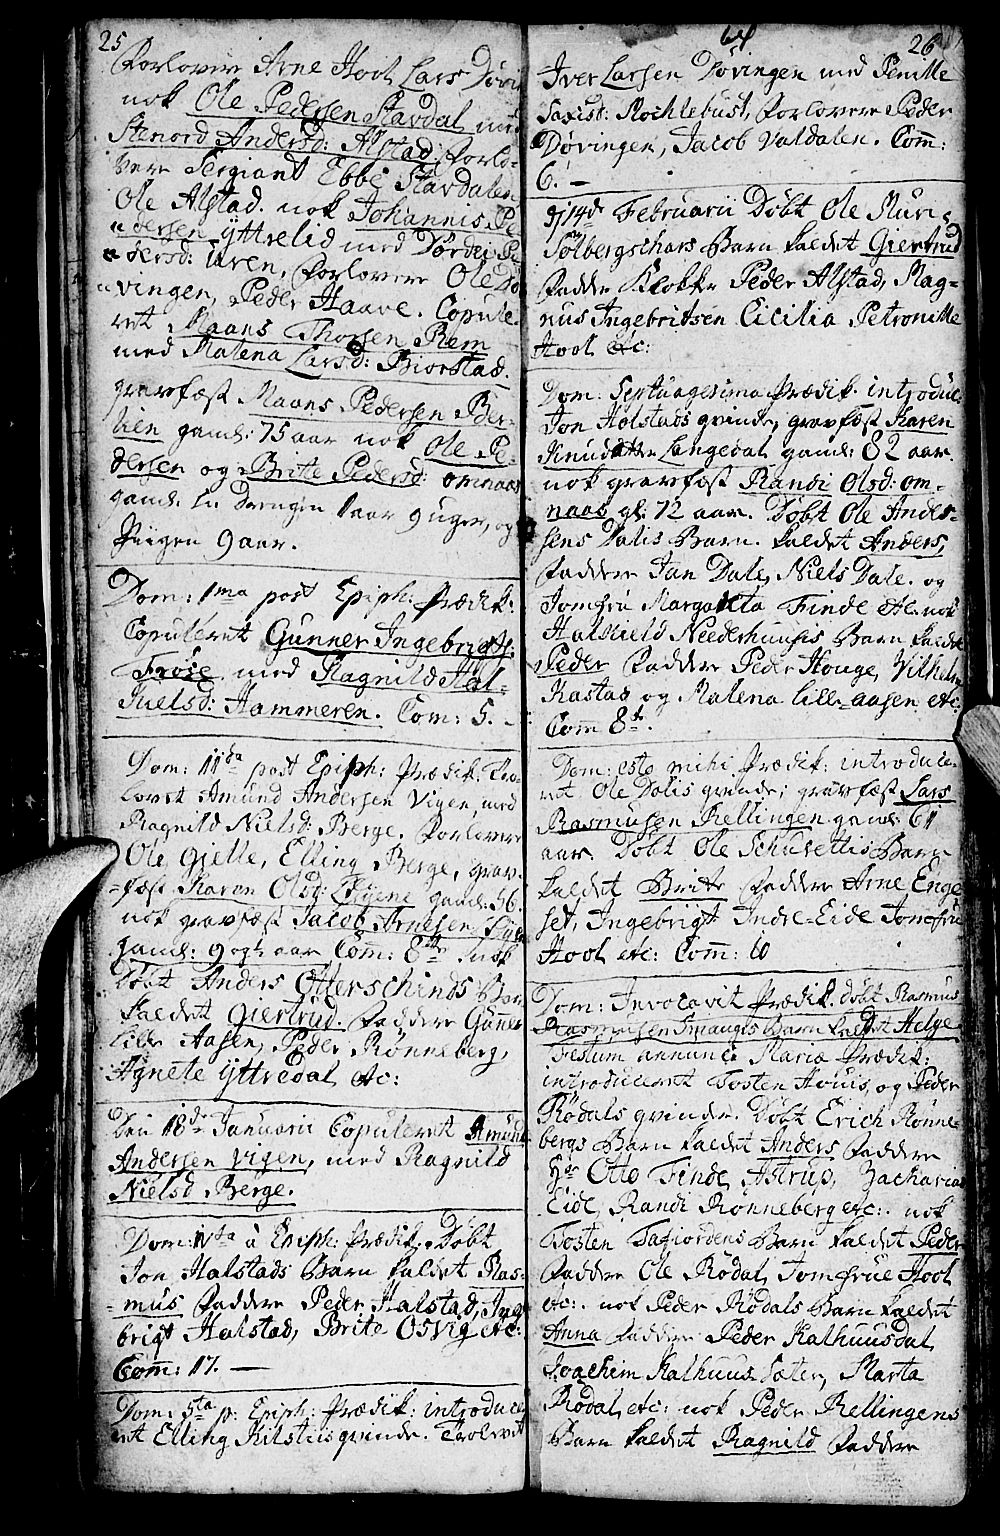 25
Forlovere Arne Hoel Lars Døvin
nok Ole Pedersen Stavdal med
Stenord Andersd: Alstad, forlo-
vere Sergiant Ebbe Stavdalen
Ole Alstad. nok Johannis Pe-
dersen yttrelid med Dordei Pe
dersd: Uren, Forlovere Ole Dø
vingen, Peder Haave. Copule
ret Maans Thorsen Rem
med Malena Larsd: Biorstad.
gravfæst Maans Pedersen Ber-
lien gaml: 75 aar nok Ole Pe-
dersen og Brite Pedersd: omnaas
gaml: en Drengen 1 aar 9 uger, og
Piigen 9 aar.
Dom: 1ma post Epiph: Prædik:
Copuleret Gunner Ingebrigts:
Frøse med Ragnild Hal-
kuelsd: Hammeren. Com: 5.
Dom: 11da post Epiph: Prædik: Tro-
lovet Amund Andersen Vigen, med
Ragnild Nielsd: Berge. Forlovere
Ole Gielle, Elling Berge, grav-
fæst Karen Olsd: gaml: 56.
nok gravfæst Jacob Arnesen
gaml: 90 gt aar Com: 8te nok
Døbt Anders Otterschinds Barn
Kaldet Giertrud. Faddere Guner
lille Aasen, Peder Rønneberg,
Agnete yttredal etc:
Den 18de Januarii Copuleret Amund
Andersen vigen, med Ragnild
Nielsd Berge.
Dom: IVta à Epiph: Prædik. Døbt
Jon Halstads Barn kaldet Ras-
mus Faddere Peder Halstad, Inge
brigt Halstad, Brite Osvig etc:
Com: 17.
Dom: 5ta p: Epiph: Prædik: introduce
ret Elling Kilstiis qvinde. Trolovet
64
26
Iver Larsen Døvingen med Penille
Saxisd: Mochlebust, Forlovere Peder
Døvingen, Jacob Valdalen. Com:
6.
d 14de Februarii Døbt Ole Muri
Sølbergschars Barn kaldet Giertrud
Fadde Klokke Peder Alstad, Mag-
nus Ingebritsen Cicilia Petronille
Hoel etc:
Dom: Septuagesima Prædik: introduc
Jon Holstads qvinde, gravfæst Karen
Knudatter Langedal gaml: 82 aar
nok gravfæst Randi Olsd: om-
naas gl: 72 aar. Døbt Ole Ander-
sens Dalis Barn. kaldet Anders,
Faddere Jan Dale, Niels Dale. og
Jomfru Margareta Finde etc. nok
Halkield Neederhuusis Barn kaldet
Peder Faddere Peder Houge, Vilhelm
Kastas og Malena lille-aasen etc:
Com 8te.
Dom: esto mihi Prædik: introduce-
ret Ole Dalis qvinde; gravfæst Lars
Rasmusen Rellingen gaml: 61
aar. Døbt Ole Schusettis Barn
kaldet Brite Faddere Arne Enge
set, Ingebrigt Indre-Eide Jomfrue
Hoel etc: Com: 10
Dom: Invocavit Prædik. døbt Rasmus
Rasmusen Smaugis Barn kaldet Helge
Festum annunci Mariæ Prædik:
introduceret Tosten Houis, og Peder
Rødals qvinde. Døbt Erich Rønne
bergs Barn kaldet Anders Faddere
Hr Otto Finde, Astrup, Zacharias
Eide, Randi Rønneberg etc: nok
Tosten Tafiordens Barn kaldet Peder
Faddere Ole Rødal, Jomfrue Hoel
etc: nok Peder Rødals Barn kaldet
Anna Faddere Peder Kalhuusdal,
Joachim Kalhuus Sæter, Marta
Rødal etc: nok Peder Rellingens
Barn kaldet Ragnild Faddere